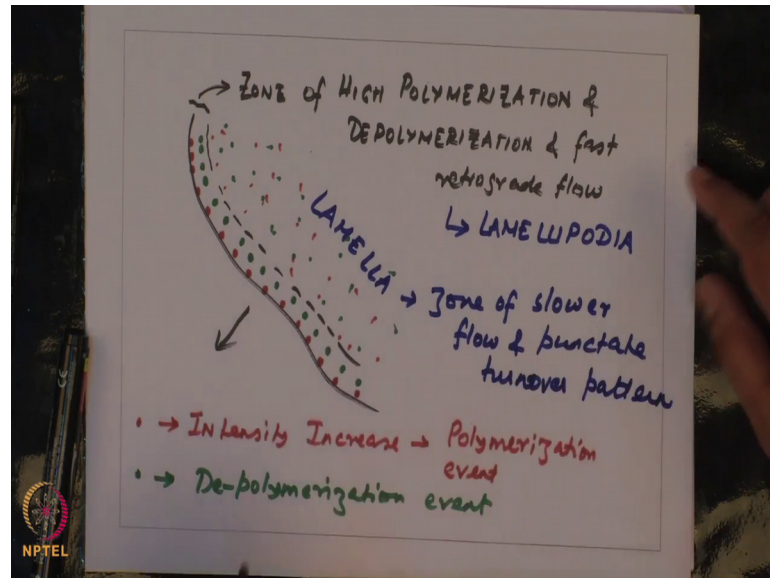 ZONE of HIGH POLYMERIZATION &
DEPOLYMERIZATION & fast
retrograde flow
↳ LAMELLIPODIA
LAMELLA → Zone of slower
flow & punctate
turnover pattern
• → Intensity Increase → Polymerization
event
• → De-polymerization event
NPTEL